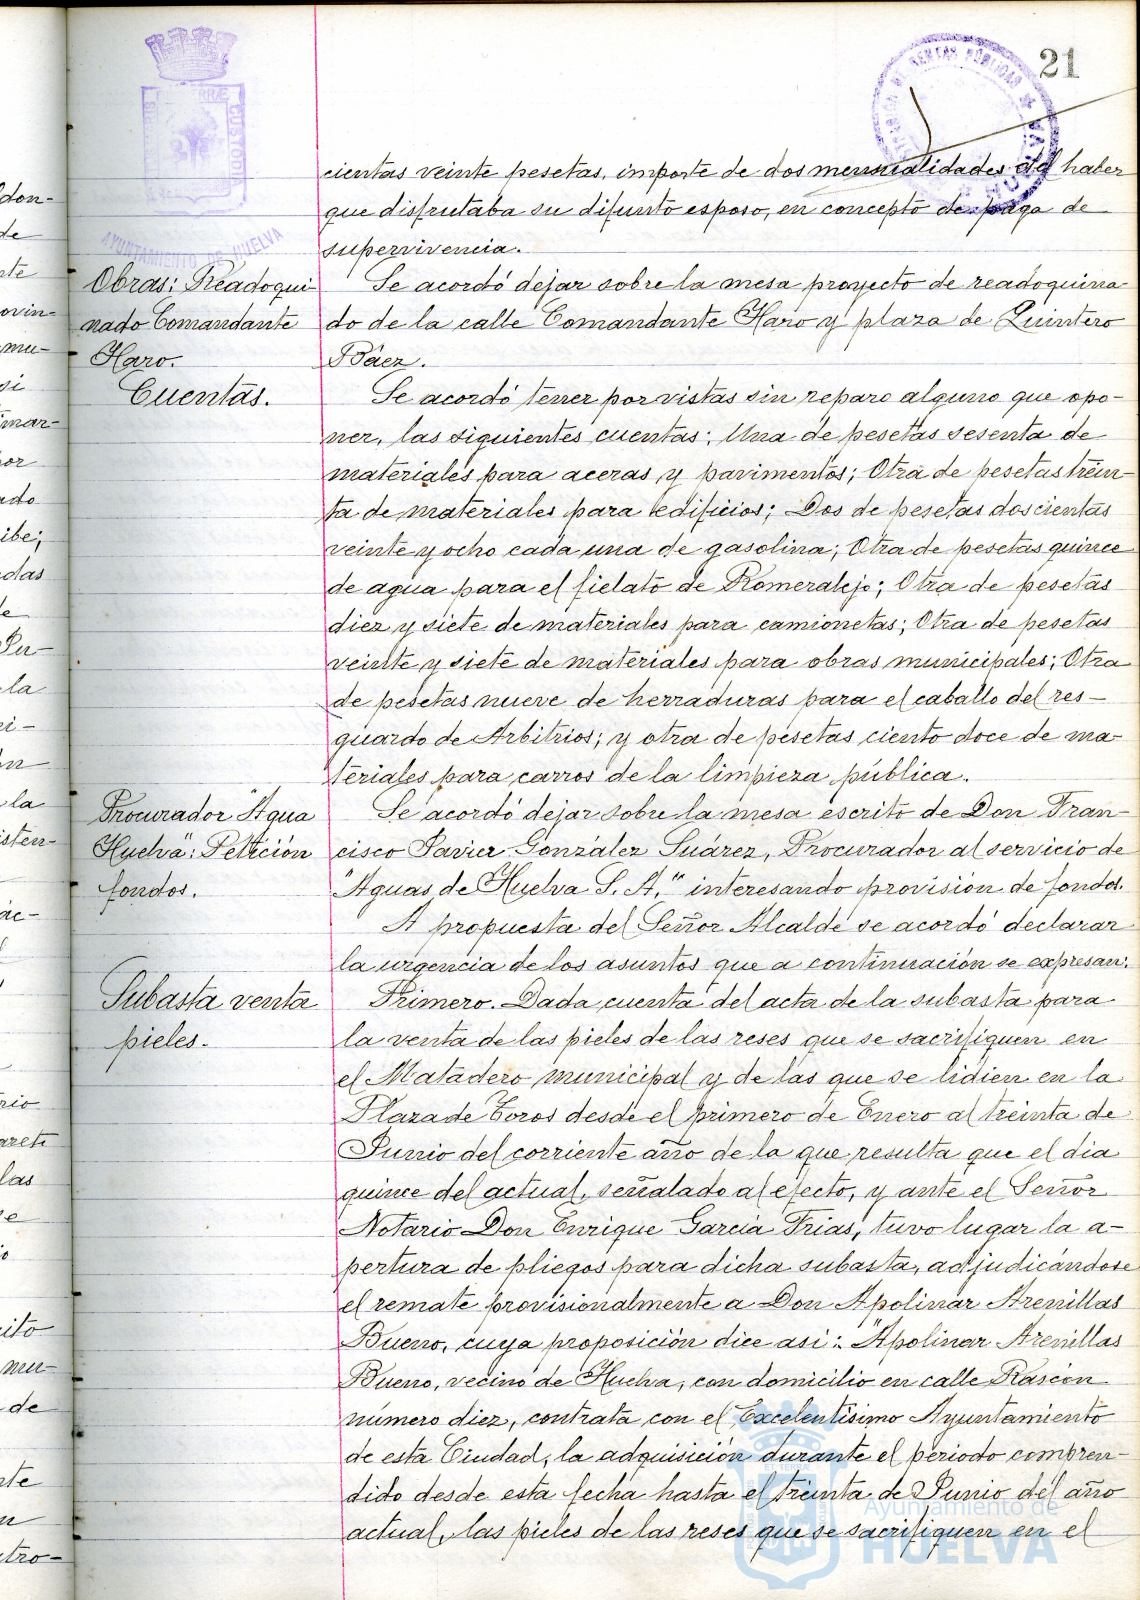 21
cientas veinte pesetas, importe de dos mensualidades del haber
que disfrutaba su difunto esposo, en concepto de paga de
supervivencia.
AYUNTAMIENTO DE HUELVA
Obras: Readoqui-
nado Comandante
Haro.
Se acordó dejar sobre la mesa proyecto de readoquina-
do de la calle Comandante Haro y plaza de Quintero
Báez.
Cuentas.
Se acordó tener por vistas sin reparo alguno que opo-
ner, las siguientes cuentas: Una de pesetas sesenta de
materiales para aceras y pavimentos; Otra de pesetas trein-
ta de materiales para edificios; Dos de pesetas doscientas
veinte y ocho cada una de gasolina; Otra de pesetas quince
de agua para el fielato de Romeralejo; Otra de pesetas
diez y siete de materiales para camionetas; Otra de pesetas
veinte y siete de materiales para obras municipales; Otra
de pesetas nueve de herraduras para el caballo del res-
guardo de Arbitrios; y otra de pesetas ciento doce de ma-
teriales para carros de la limpieza pública.
Procurador "Agua
Huelva": Petición
fondos.
Se acordó dejar sobre la mesa escrito de Don Fran-
cisco Javier González Suárez, Procurador al servicio de
"Aguas de Huelva S. A," interesando provisión de fondos.
A propuesta del Señor Alcalde se acordó declarar
la urgencia de los asuntos que a continuación se expresan:
Subasta venta
pieles.
Primero. Dada cuenta del acta de la subasta para
la venta de las pieles de las reses que se sacrifiquen en
el Matadero municipal y de las que se lidien en la
Plaza de Toros desde el primero de Enero al treinta de
Junio del corriente año de la que resulta que el dia
quince del actual, señalado al efecto, y ante el Señor
Notario Don Enrique García Frias, tuvo lugar la a-
pertura de pliegos para dicha subasta, adjudicándose
el remate provisionalmente a Don Apolinar Arenillas
Bueno, cuya proposición dice asi: "Apolinar Arenillas
Bueno, vecino de Huelva, con domicilio en calle Rascón
número diez, contrata con el Excelentisimo Ayuntamiento
de esta Ciudad, la adquisición durante el periodo compren-
dido desde esta fecha hasta el treinta de Junio del año
actual, las pieles de las reses que se sacrifiquen en el
Ayuntamiento de
HUELVA